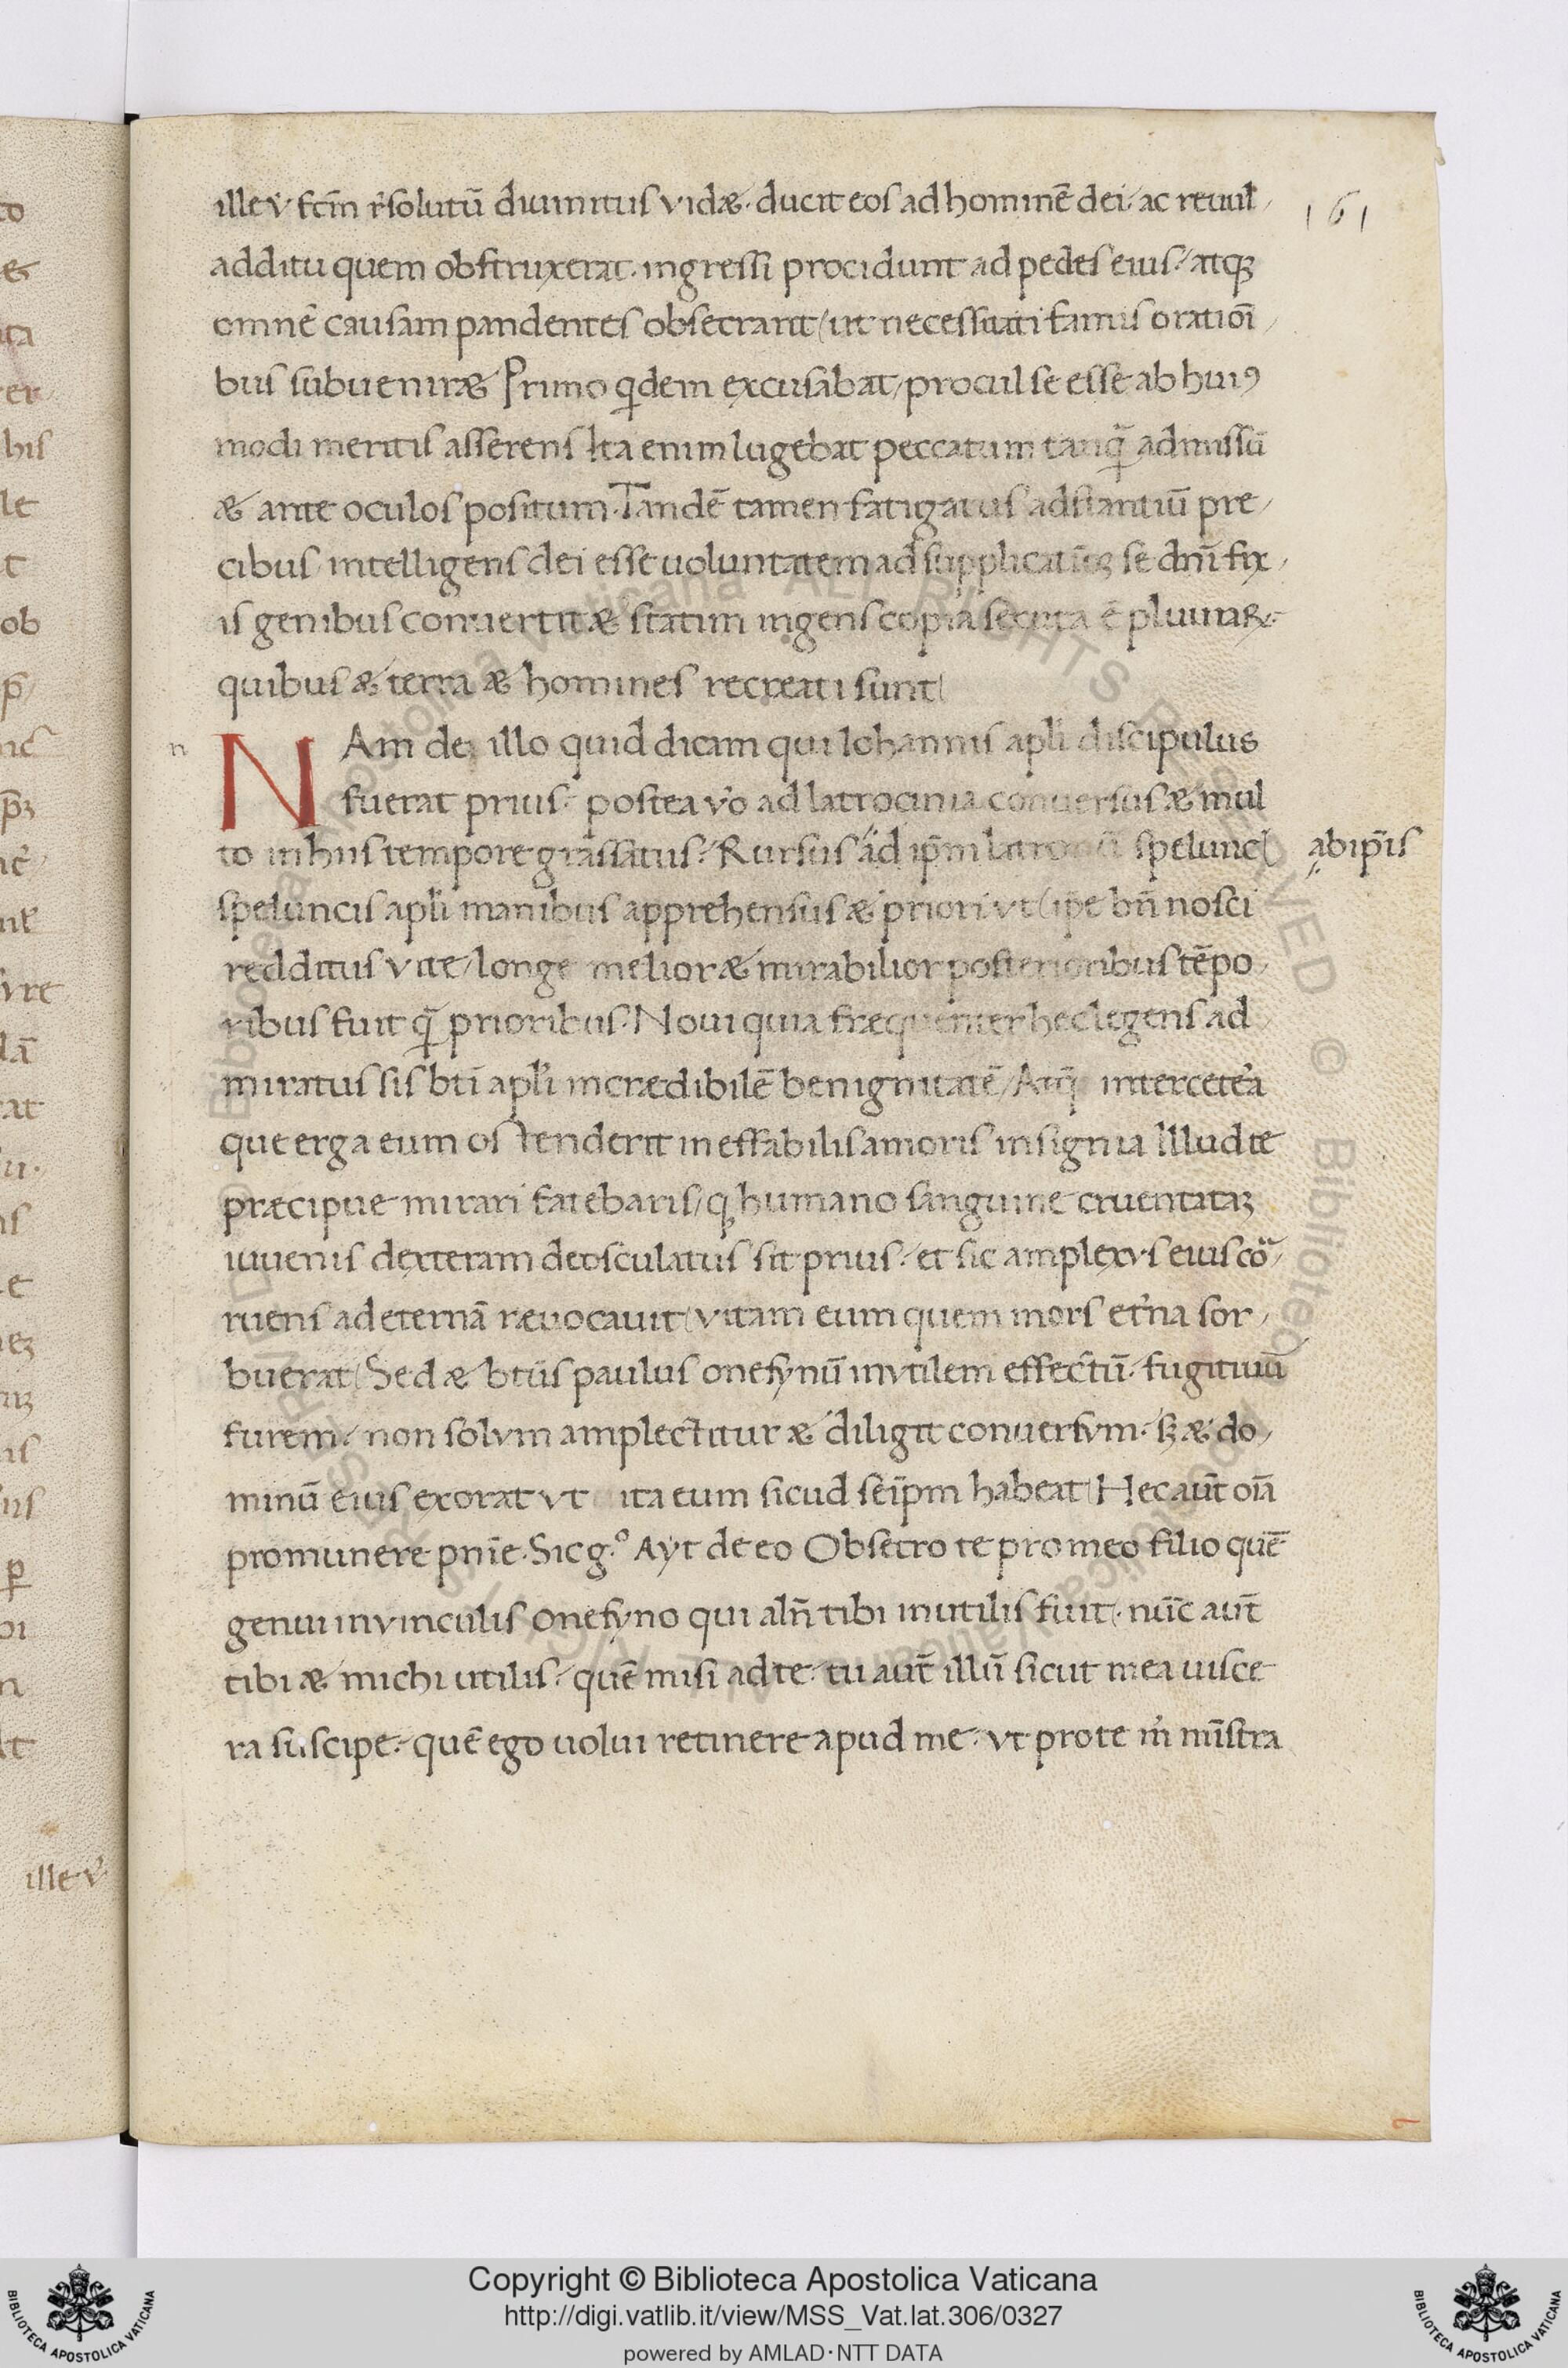 ille v̓ fcm̄ r̓solutū diuinitus vidæ · ducit eos ad hominē dei · ac reuul
161
additu quem obstruxerat · ingressi procidunt ad pedes eius · atqꝫ
omnē causam pandentes obsecrant ut necessitati famis orationi
bus subueniræ Primo qͥdem excusabat / procul se esse ab huiꝰ
modi meritis asserens Ita enim lugebat peccatum tanq̄ admissū
æ ante oculos positum · Tandē tamen fatigatus adstantiū pre
cibus intelligens dei esse uoluntatem ad se dnī fix
is genibus conuertit æ statim ingens copia secuta ē pluuiaꝝ
quibus æ terra æ homines recreati sunt
n
NAm de illo quid dicam qui Iohannis apli discipulus
fuerat prius · postea v̓o ad latrocinia conuersus æ mul
to in hiis tempore grassatus · Rursus ad ip̄m spelunc
ab ip̄is
speluncis apli manibus apprehensus æ priori vt ip̄e bn̄ nosci
redditus vite / longe melior æ mirabilior posterioribus tēpo
ribus fuit q̄ prioribus · Noui quia fræquenter hec legens ad
miratus sis bt̄i apli incrædibilē benignitatē / Atq̄ inter cetēa
que erga eum ostenderit ineffabilis amoris insignia Illud te
præcipue mirari fatebaris / qꝫ humano sanguine cruentataꝫ
iuuenis dexteram deosculatus sit prius · et sic amplexvs eius cō
ruens ad eternā ræuocauit vitam eum quem mors et̓na sor
buerat Sed æ bt̄us paulus onesynū invtilem effectū · fugitiuū
furem · non solvm amplectitur æ diligit conuersvm · sꝫ æ do
minū eius exorat vt ita eum sicud seip̄m habeat Hec aūt oīa
pro munere pn̄ie · Sic g.° Ayt de eo Obsecro te pro meo filio quē
genui in vinculis onesyno qui aln̄ tibi inutilis fuit · nūc aūt
tibi æ michi utilis · quē misi ad te · tu aūt illū sicut mea uisce
ra suscipe · quē ego uolui retinere apud me · vt pro te m̓ mīstra
ille v̓
Copyright © Biblioteca Apostolica Vaticana
http://digi.vatlib.it/view/MSS_Vat.lat.306/0327
powered by AMLAD·NTT DATA